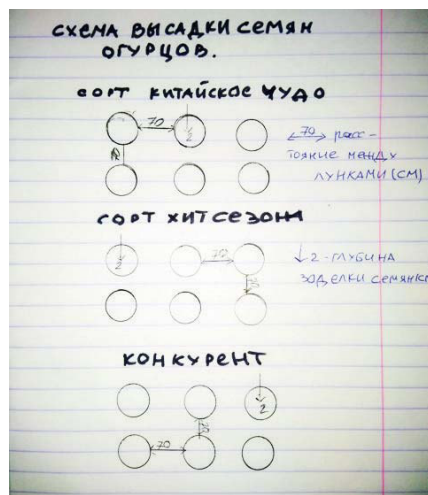 СХЕМА ВЫСАДКИ СЕМЯН
ОГУРЦОВ.
СОРТ КИТАЙСКОЕ ЧУДО
70
2
70 расс-
тояние между
лунками (см)
СОРТ ХИТ СЕЗОНА
2
70
2-глубина
заделки семян
КОНКУРЕНТ
2
70